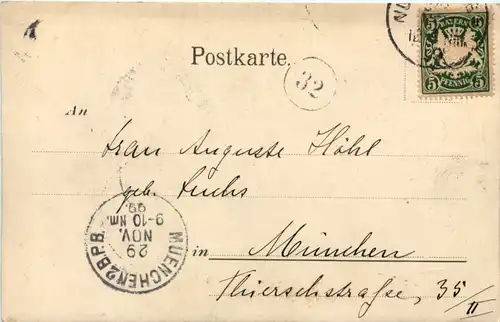 BAYERN
5 5
PFENNIG
NU
Postkarte.
32
An
Frau Auguste Höhl
geb. Fuchs
in München
Thierschstraße, 35/II
MUENCHEN 2 B.P.B.
29
NOV.
9-10 Nm.
99